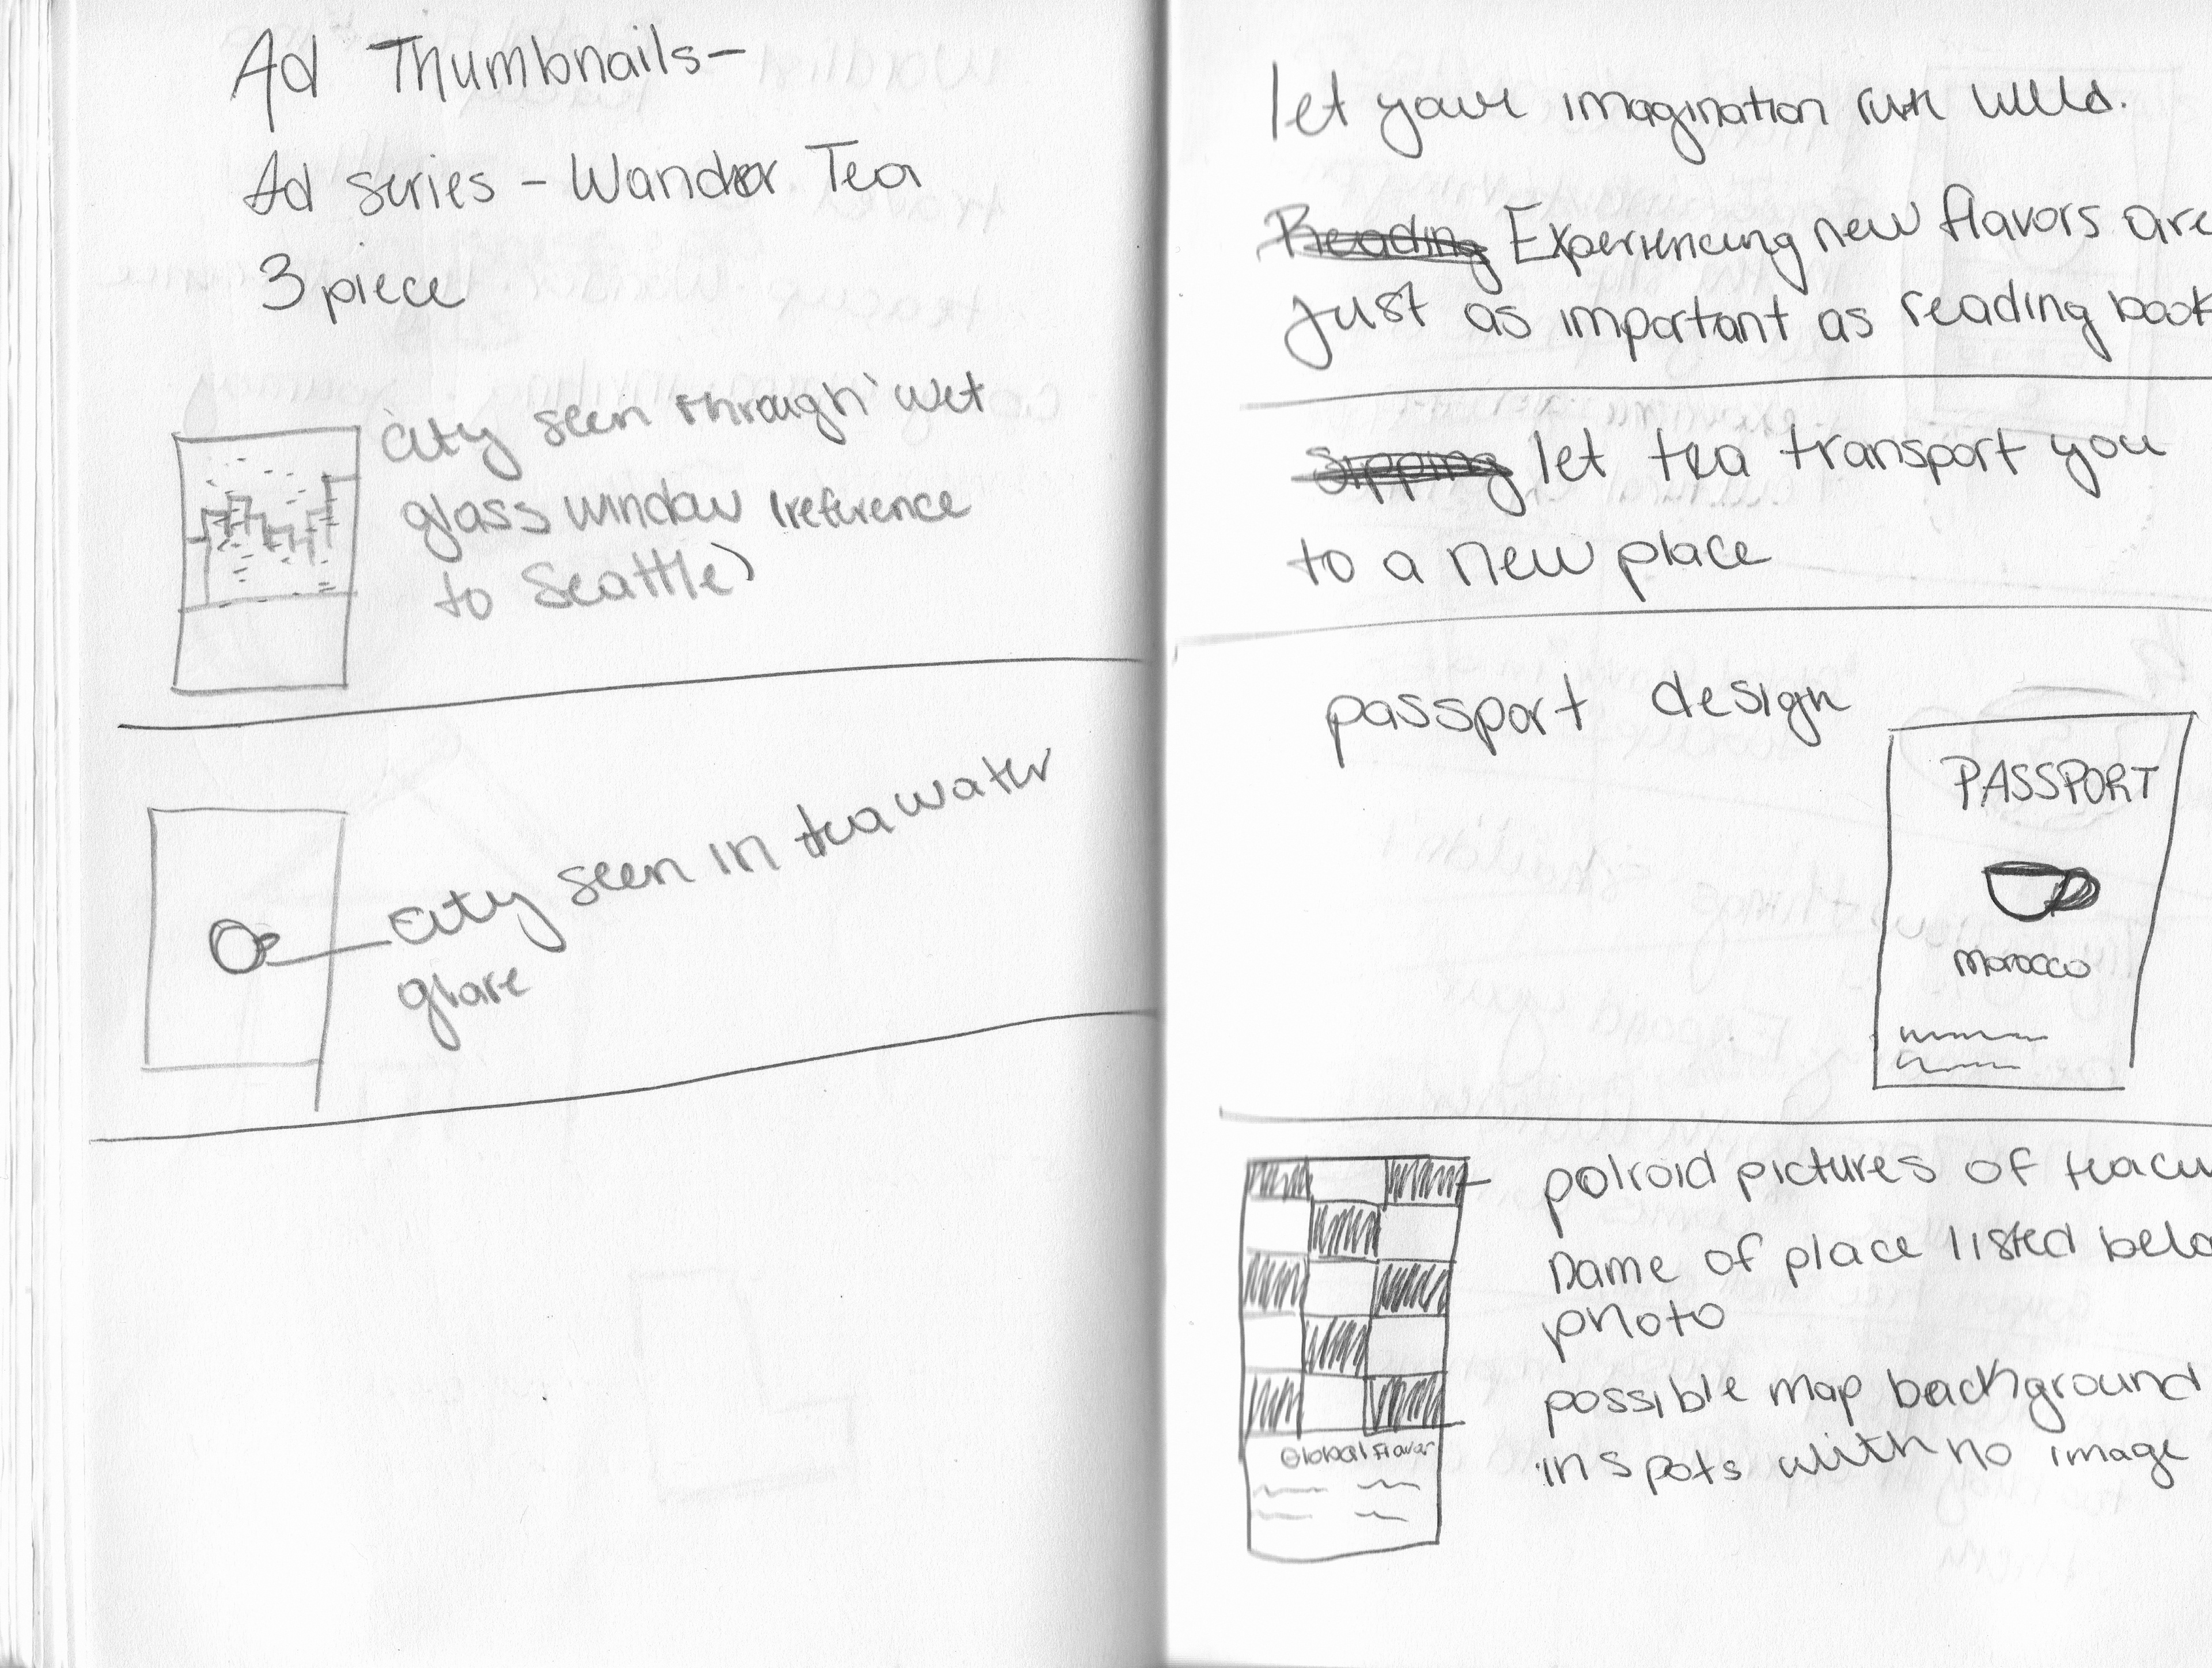 Ad Thumbnails-
Ad series - Wander Tea
3 piece
city seen through wet
glass window (reference
to Seattle)
city seen in tea water
glare
let your imagination run wild.
Reading Experiencing new flavors are
Just as important as reading book
Sipping let tea transport you
to a new place
passport design
PASSPORT
morocco
polroid pictures of teacu
name of place listed belo
photo
possible map background
in spots with no image
Global Flavor